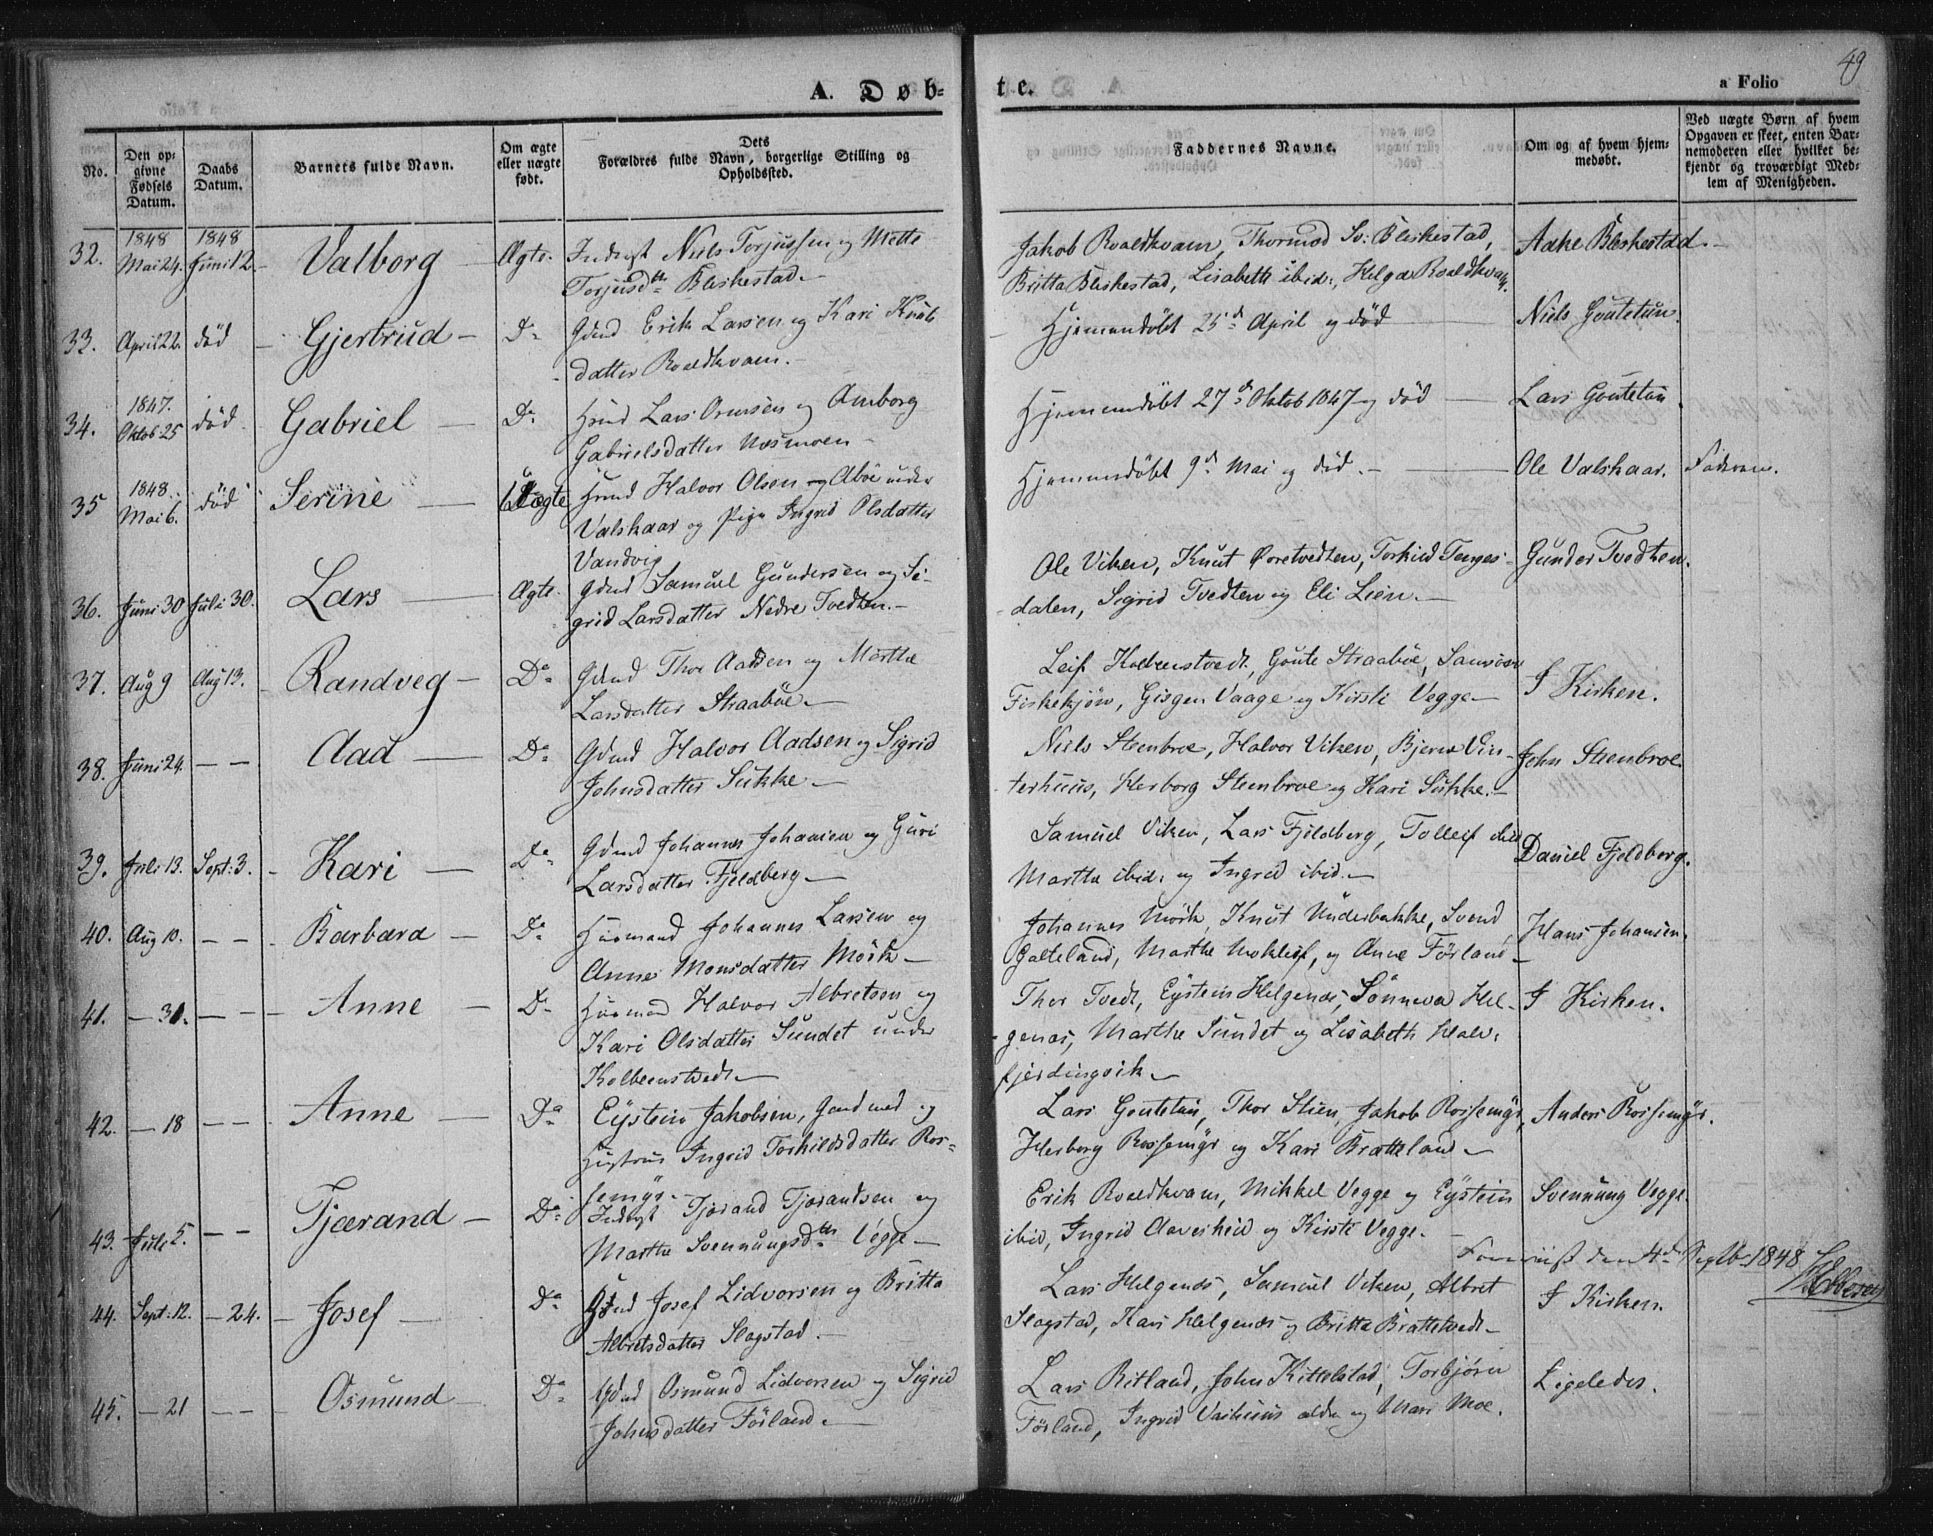 49
A. Døbte.
a Folio
No.
Den opgivne Fødsels Datum.
Daabs Datum.
Barnets fulde Navn.
Om ægte eller uægte født.
Dets Forældres fulde Navn, borgerlige Stilling og Opholdssted.
Faddernes Navne.
Om og af hvem hjemmedøbt.
Ved uægte Børn af hvem Opgaven er skeet, enten Barnemoderen eller hvilket bekjendt og troværdigt Medlem af Menigheden.
32. 1848 Mai 24. 1848 Juni 12. Valborg Ægte. Inderst Niels Torjussen og Mette
Torjusdtr Bleskestad.
Jakob Roaldkvam, Thormod Sv: Bleskestad,
Britta Bleskestad, Lisabeth ibid:, Helga Roaldkvam.
Aake Bleskestad.
33. April 22. død Gjertrud Do Gdmd Erik Larsen og Kari Knuts
datter Roaldkvam.
Hjemmedøbt 25d April og død
Niels Goutetun.
34. 1847. Oktob 25 død Gabriel Do Hmd Lars Ormsen og Amborg
Gabrielsdatter Næsmoen
Hjemmedøbt 27d Oktob 1847 og død
Lars Goutetun
35 1848. Mai 6. død Serine Uægte Hmd Halvor Olsen Aboe under
Valskaar og Pige Ingrid Olsdatter
Vandvig
Hjemmedøbt 9d Mai og død.
Ole Valskaar. Faderen.
36. Juni 30 Juli 30. Lars Ægte. Gdmd Samuel Gundersen og Si-
grid Larsdatter Nedre Tvedten.
Ole Viken, Knut Øvretvedten, Torkild Tenges-
dalen, Sigrid Tvedten og Eli Lien.
Gunder Tvedten.
37. Aug 9 Aug 13. Randveg Do Gdmd Thor Aadsen og Marthe
Larsdatter Straabøe.
Leif Kolbenstvedt, Goute Straabøe, Samson
Fiskekjøn, Gisgen Vaage og Kirsti Vegge
I Kirken.
38. Juni 24. Aad Do Gdmd Halvor Aadsen og Sigrid
Johnsdatter Sukke
Niels Steenbroe, Halvor Viken, Bjerne Vin-
terhuus, Herborg Steenbroe og Kari Sukke.
John Steenbroe.
39. Juli 13. Sept: 3. Kari Do Gdmd Johannes Johansen og Guri
Larsdatter Fjeldberg
Samuel Viken, Lars Fjeldberg, Tollef ibid
Martha ibid: og Ingrid ibid.
Daniel Fjeldberg.
40. Aug 10. Barbara Do Huusmand Johannes Larsen og
Anne Monsdatter Mörk
Johannes Mörk, Knut Underbakke, Svend
Galteland, Marthe Mokleif, og Anne Førland
Hans Johansen.
41. 31. Anne Do Huusmand Halvor Albretsen og
Kari Olsdatter Sundet under
Kolbeenstvedt.
Thor Tvedt, Eystein Helgenæs, Sønneva Hel-
genæs, Marthe Sundet og Lisabeth Halv-
fjerdingvik.
I Kirken.
42. 18 Anne Do Eystein Jakobsen, Gaardmd og
Hustrue Ingrid Torkildsdatter Ros-
semyr.
Lars Goutetun, Thor Stien, Jakob Rossemyr,
Herborg Rossemyr og Kari Bratteland.
Anders Rossemyr.
43. Juli 5. Tjærand Do Inderst Tjærand Tjærandsen og
Marthe Svennungsdtr Vegge
Erik Roaldkvam, Mikkel Vegge og Eystein
ibid, Ingrid Aaresheid og Kirsti Vegge.
Svennung Vegge.
den 4de Septbr 1848
44. Sept: 12. 24. Josef Do Gdmd Josef Lidvorsen og Britta
Albretsdatter Slagstad.
Lars Helgenæs, Samuel Viken, Albret
Slagstad, Kari Helgenæs og Britta Brattetvedt
I Kirken.
45. 21 Osmund Do Gdmd Osmund Lidvorsen og Sigrid
Johnsdatter Førland.
Lars Ritland, John Kittelstad, Torbjörn
Førland, Ingrid Vaihuus og Mari Moe.
Ligeledes.